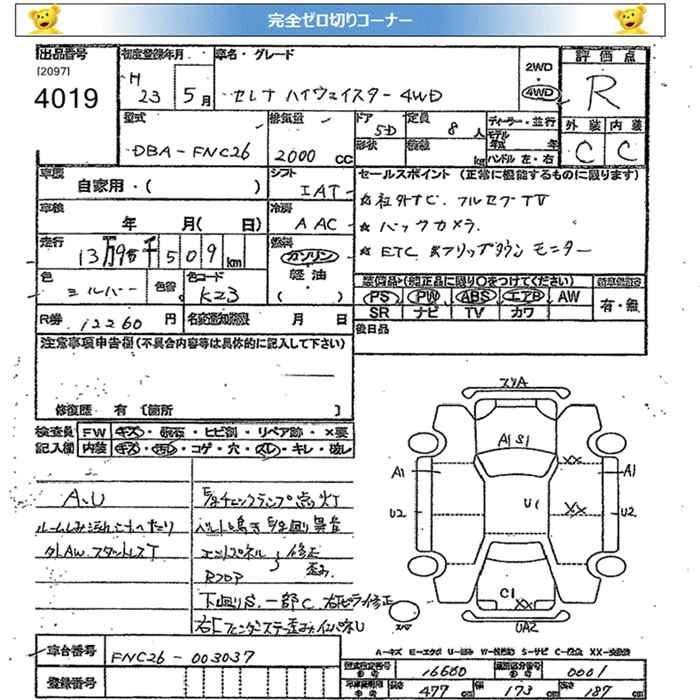 完全ゼロ切りコーナー
出品番号 初度登録年月 車名・グレード 評価点
[2097] 4019
H 23 5月 セレナ ハイウェイスター 4WD
2WD 4WD R
外装 内装
C C
型式 排気量 ドア 定員 ディーラー・並行
DBA-FNC26 2000 CC 5D 8人
形状 積載 kg モデル 年式 年
ハンドル 左・右
車歴 シフト セールスポイント (正常に機能するものに限ります)
自家用・( ) IAT
★社外ナビ. フルセグTV
車検 冷房
年 月( 日) AAC
★バックカメラ.
走行 燃料
13万9千509km ガソリン
★ETC フリップダウン モニター
軽油・
( )
色 色替 色コード
シルバー K23
装備品>(純正品に限り○をつけてください)
PS PW ABS エアB AW 有・無
SR ナビ TV カワ
R券 12260円 名変期限 月 日
後日品
注意事項申告欄(不具合内容等は具体的に記入して下さい)
修復歴 有 [箇所 ]
検査員 FW キズ・飛石・ヒビ割・リペア跡・×要
記入欄 内装 キズ・汚れ・コゲ・穴・スレ・キレ・破レ
A.U
外AW.スタットレスT
ベルト鳴き
エンドパネル 修正
Rフロア 歪み
下廻りS.一部C.右ピラー修正
スリA
A1 S1
XX
A1 A1
XX
U2 U1 U2
C1 XX
UA2
スペア
A-キズ E-エクボ U-凹み S-サビ XX-交換済
車台番号 FNC26-003037
登録番号
型式指定番号 16660 類別区分番号 0001
長さ 477cm 幅 173cm 高さ 187cm